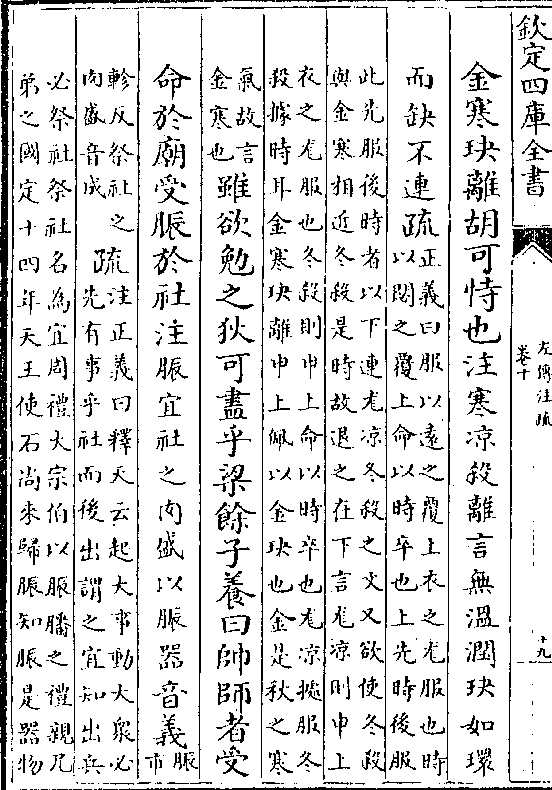 欽定四庫全書
左傳注疏
卷十
十九
金寒玦離胡可恃也注寒凉殺離言無温潤玦如環
而缺不連疏
正義曰服以遠之覆上衣之尨服也時
以閟之覆上命以時卒也上先時後服
此先服後時者以下連尨凉冬殺之文又欲使冬殺
與金寒相近冬殺是時故退之在下言尨凉則申上
衣之尨服也冬殺則申上命以時卒也尨凉據服冬
殺據時耳金寒玦離申上佩以金玦也金是秋之寒
氣故言
金寒也
雖欲勉之狄可盡乎梁餘子養曰帥師者受
命於廟受脤於社注脤宜社之肉盛以脤器音義
脤
市
軫反祭社之
肉盛音成
疏
注正義曰釋天云起大事動大衆必
先有事乎社而後出謂之宜知出兵
必祭社祭社名為宜周禮大宗伯以脤膰之禮親兄
弟之國定十四年天王使石尚來歸脤知脤是器物